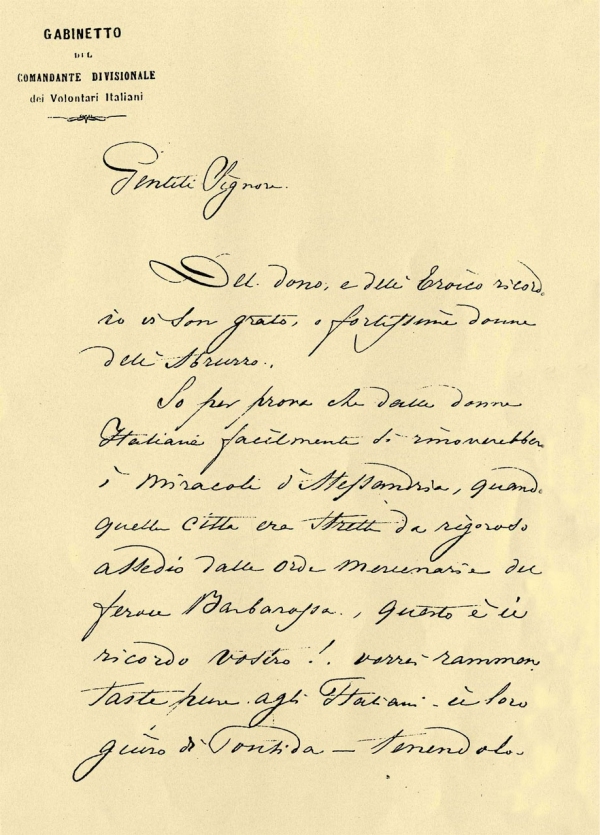 GABINETTO
DEL
COMANDANTE DIVISIONALE
dei Volontari Italiani
Gentili Signore.
Del dono, e dell' Eroico ricordo
io vi son grato, o fortissime donne
dell' Abruzzo.
So per prova che dalle donne
Italiane facilmente si rinoverebbero
i miracoli d'Alessandria, quando
quella città era stretta da rigoroso
assedio dalle orde mercenarie del
feroce Barbarossa., questo è il
ricordo vostro! vorrei rammen
taste pure agli Italiani il loro
giuro di Pontida – tenendolo